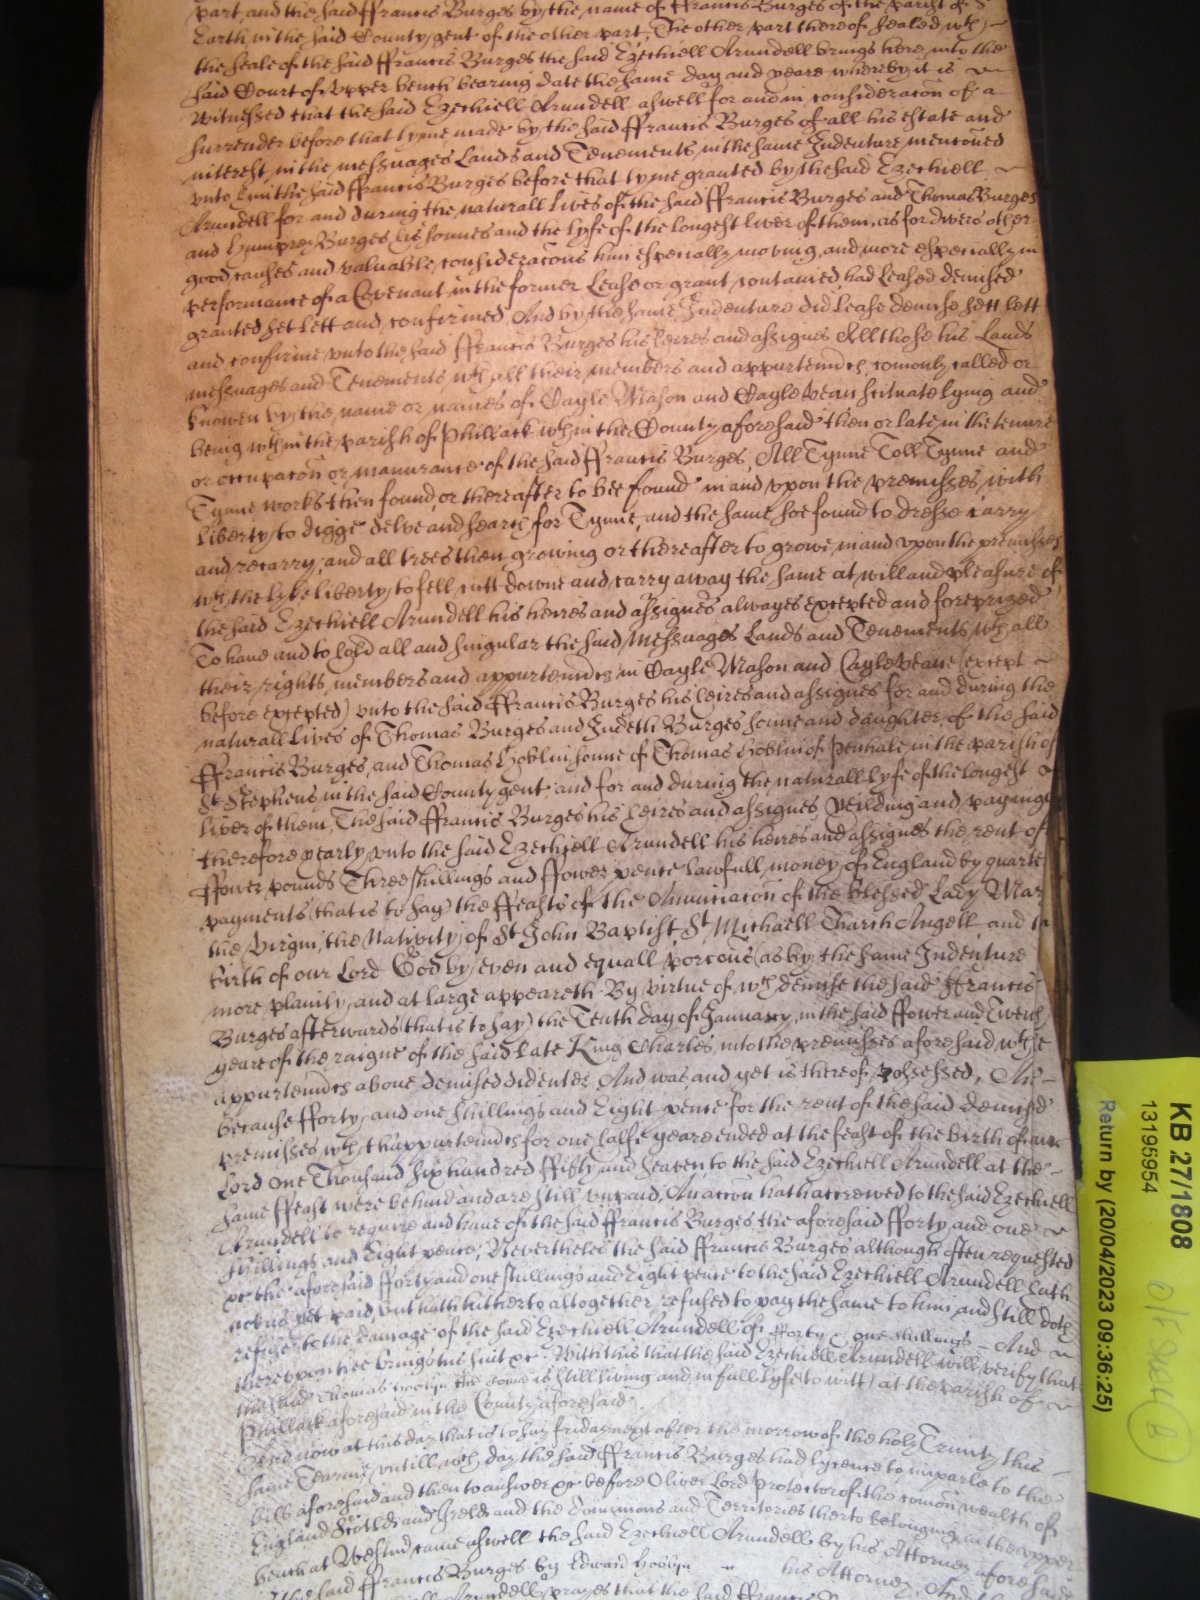 part, and the said ffrancis Burges by the name of ffrancis Burges of the parish of S
Earth in the said County gent of the other part, The other part thereof sealed wth
the seale of the said ffrancis Burges the said Ezechiell Arundell brings here into the
said Court of upper bench bearing date the same day and yeare whereby it is
witnessed that the said Ezechiell Arundell aswell for and in consideracon of a
surrender before that tyme made by the said ffrancis Burges of all his estate and
interest in the messuages Lands and Tenements in the same Indenture mentoned
unto him the said ffrancis Burges before that tyme granted by the said Ezechiell
Arundell for and during the naturall Lives of the said ffrancis Burges and Thomas Burges
and Humprey Burges his sonnes and the lyfe of the longest liver of them, as for divers other
good causes and valuable consideracons him especially moving, and more especially in
performance of a Covenant in the former Lease or grant contained, had Leased demised
granted sett Lett and confirmed, And by the same Indenture did Lease demise sett lett
and confirme unto the said ffrancis Burges his heires and assignes All those his Lands
messuages and Tenements wth all their members and appurtenncs comonly called or
knowen by the name or names of Gayle Mason and Gayle vean scituate lying and
being wthin the parish of Phillack wthin the County aforesaid then or late in the tenure
or occupacon or manurance of the said ffrancis Burges, All Tynne Toll Tynne and
Tynne works then found, or thereafter to bee found in and upon the premisses, with
liberty to digge delve and search for Tynne, and the same soe found to dresse carry
and recarry, and all trees then growing or thereafter to growe in and upon the premisses
wth the lyke liberty to fell cutt downe and carry away the same at will and pleasure of
the said Ezechiell Arundell his heires and assignes alwayes excepted and foreprized
To have and to hold all and singular the said Messuages Lands and Tenements wth all
their rights, members and appurtenncs in Gayle Mason and Gayle veane (except
before excepted) unto the said ffrancis Burges his heires and assignes for and during the
naturall Lives of Thomas Burges and Judeth Burges sonne and daughter of the said
ffrancis Burges, and Thomas Hoblin sonne of Thomas Hoblin of Penhale in the parish of
St Stephens in the said County gent and for and during the naturall lyfe of the longest
liver of them, The said ffrancis Burges his heires and assignes yeilding and paying
therefore yearly unto the said Ezechiell Arundell his heires and assignes the rent of
ffower pounds Three shillings and ffower pence lawfull money of England by quarte
payments (that is to say) the ffeasts of the Annuciacon of the blessed Lady Mar
the Virgin, the Nativity of St John Baptist, St Michaell Tharch Angell and th
birth of our Lord God by even and equall porcons (as by the same Indenture
more plainly and at large appeareth By virtue of wch demise the said ffrancis
Burges afterwards (that is to say) the Tenth day of January, in the said ffower and Twent
yeare of the raigne of the said Late King Charles, into the premisses aforesaid wth the
appurtenncs above demised did enter, And was and yet is thereof possessed, And
because fforty and one shillings and Eight pence for the rent of the said demised
premisses wth thappurtenncs for one halfe yeare ended at the feast of the birth of our
Lord one Thousand six hundred ffifty and seaven to the said Ezechiell Arundell at the
same ffeast were behind and are still unpaid, An accon hath accrewed to the said Ezechiell
Arundell to require and have of the said ffrancis Burges the aforesaid fforty and one
shillings and Eight pence; Neverthelesse the said ffrancis Burges although often requested
the aforesaid fforty and one shillings and Eight pence to the said Ezechiell Arundell hath
not as yet paid, but hath hitherto altogether refused to pay the same to him, and still doth
refuse to the damage of the said Ezechiell Arundell of fforty & one shillings And
thereupon hee brings his suit &c. With this that the said Ezechiell Arundell will verify that
the said Thomas Hoblyn the sonne is still living and in full lyfe (to witt) at the parish of
Phillack aforesaid in the County aforesaid.
And now at this day that is to say friday next after the morrow of the holy Trinity this
same Tearme untill wch day the said ffrancis Burges had lycence to imparle to the
bill aforesaid and then to answer &c before Oliver Lord Protector of the comon wealth of
England Scotld and Ireld and the Dominions and Territories therto belonging in the upper
bench at Westmr came aswell the said Ezechiell Arundell by his Attorney aforesaid
the said ffrancis Burges by Edward Hoblyn his Attorney, And
Arundell prayes that the said ffrancis
KB 27/1808
13195954
Return by (20/04/2023 09:36:25)